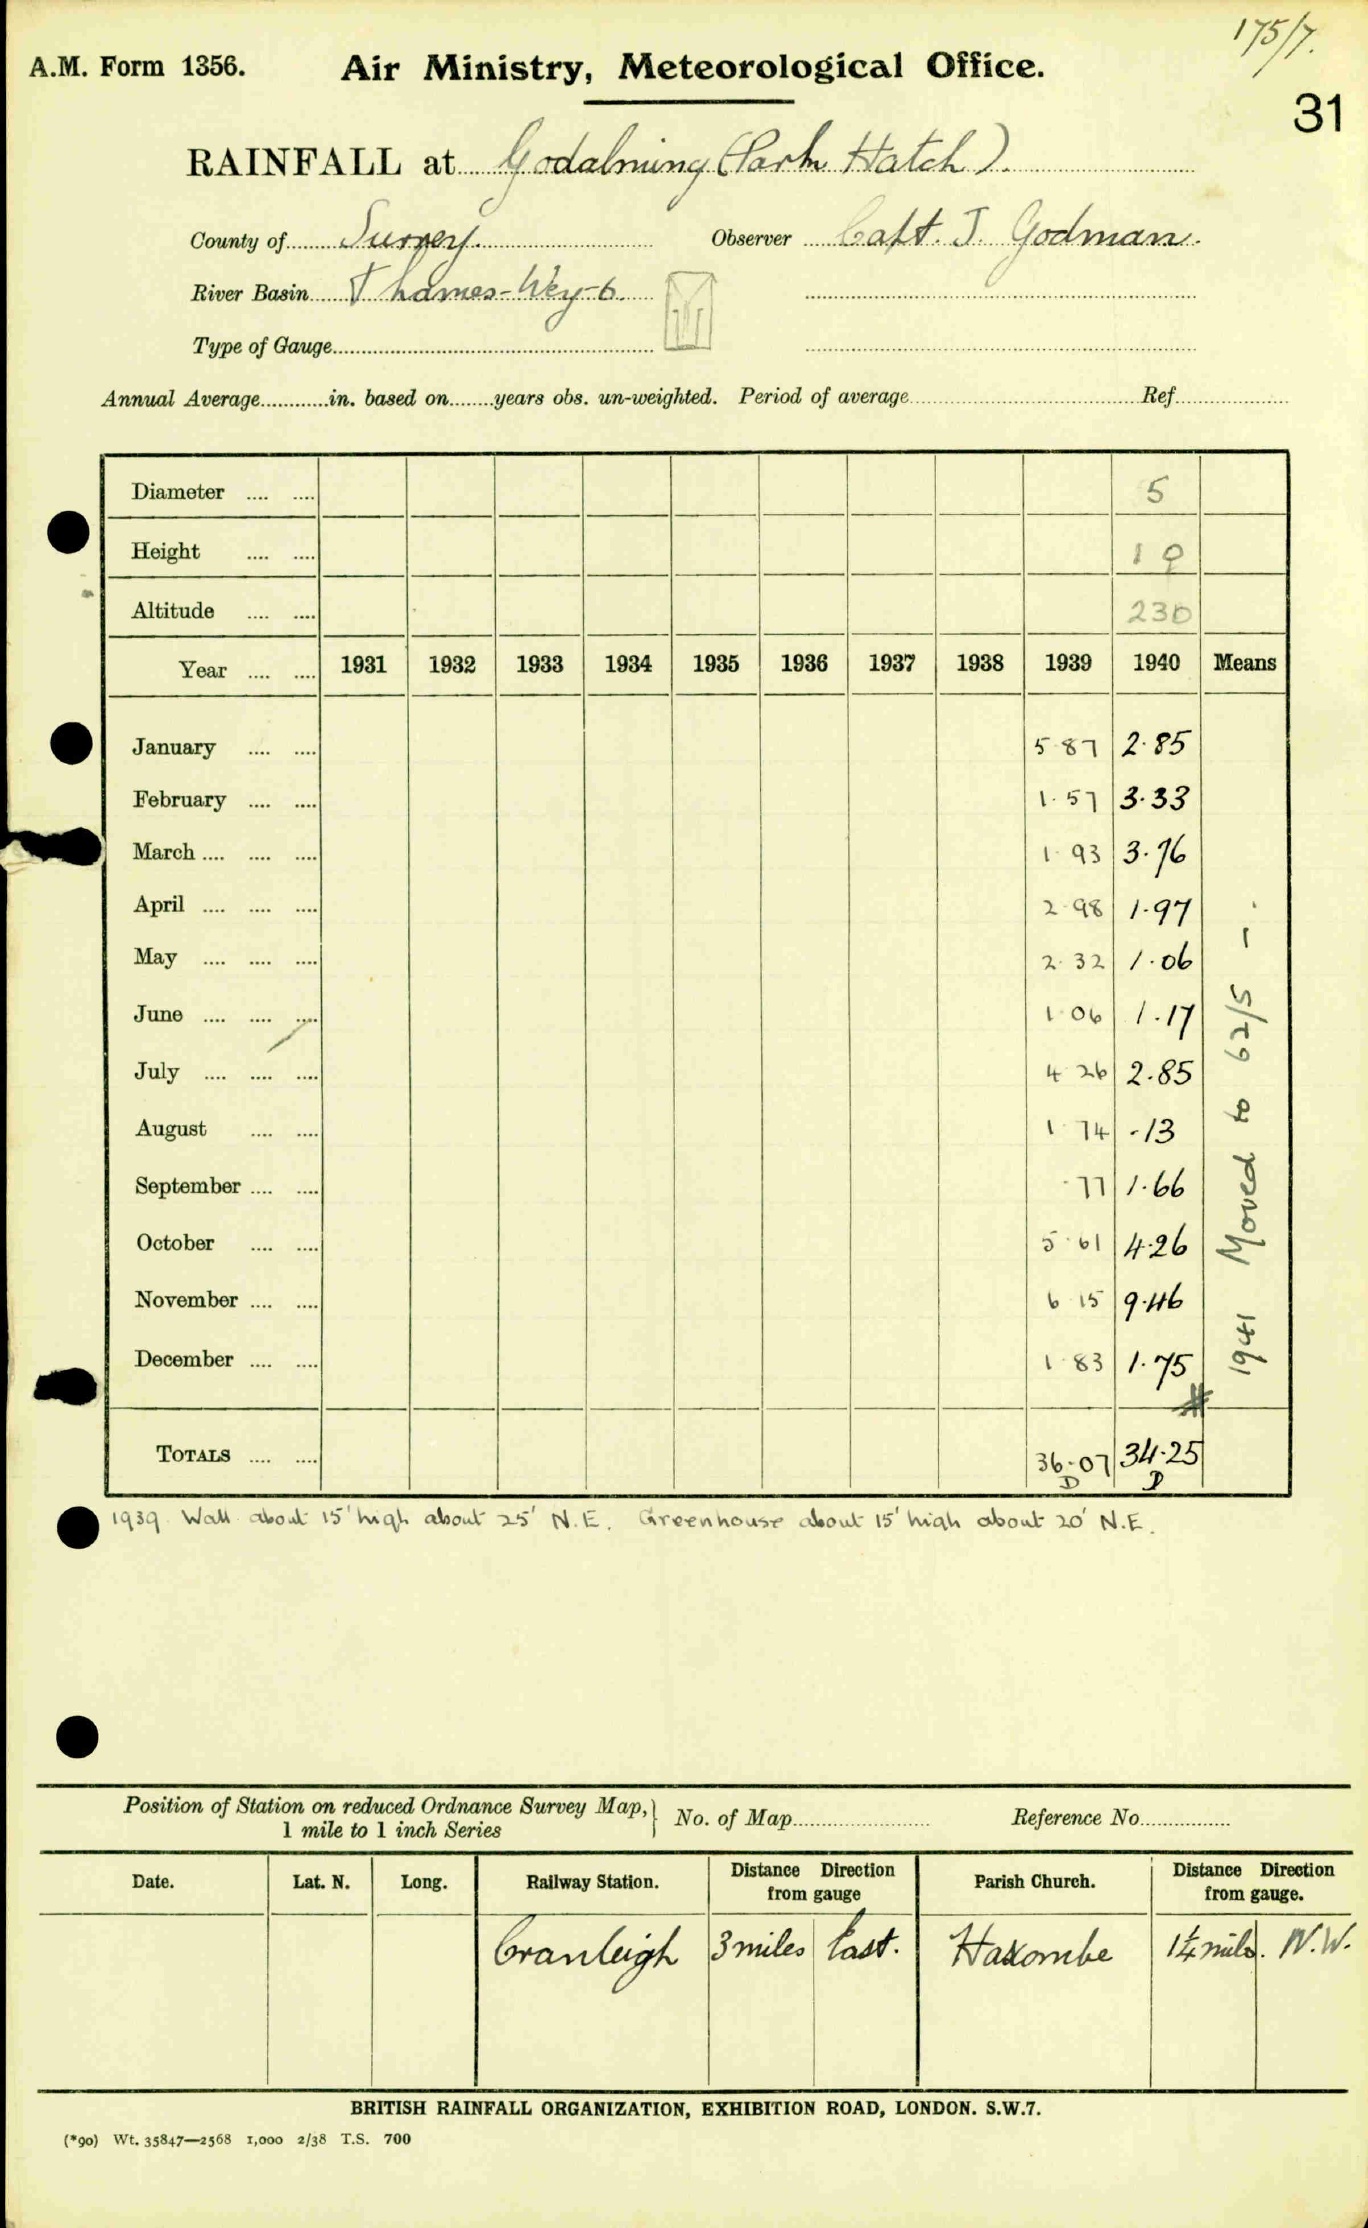 175/7.
A.M. Form 1356. Air Ministry, Meteorological Office.
31
RAINFALL at Godalming (Park Hatch).
County of Surrey. Observer Capt. J. Godman.
River Basin Thames-Wey-6
Type of Gauge
Annual Average in. based on years obs. un-weighted. Period of average Ref.
Diameter 5
Height 1 0
Altitude 230
Year 1931 1932 1933 1934 1935 1936 1937 1938 1939 1940 Means
January 5.87 2.85
February 1.57 3.33
March 1.93 3.76
April 2.98 1.97
May 2.32 1.06
June 1.06 1.17
July 4.26 2.85
August 1.74 .13
September .77 1.66
October 5.61 4.26
November 6.15 9.46
December 1.83 1.75
TOTALS 36.07 34.25
D D
1941 Moved to 62/5 - .
1939 Wall about 15' high about 25' N.E. Greenhouse about 15' high about 20' N.E.
Position of Station on reduced Ordnance Survey Map, 1 mile to 1 inch Series } No. of Map Reference No.
Date. Lat. N. Long. Railway Station. Distance Direction from gauge Parish Church. Distance Direction from gauge.
Cranleigh 3 miles East. Hascombe 1¼ mile. N.W.
BRITISH RAINFALL ORGANIZATION, EXHIBITION ROAD, LONDON. S.W.7.
(*90) Wt. 35847—2568 1,000 2/38 T.S. 700